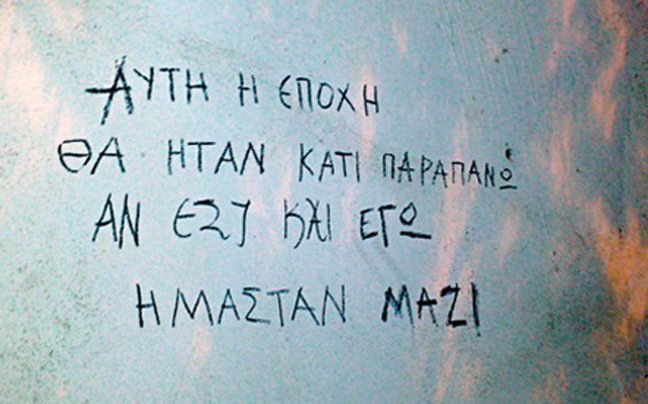 ΑΥΤΗ Η ΕΠΟΧΗ
ΘΑ ΗΤΑΝ ΚΑΤΙ ΠΑΡΑΠΑΝΩ
ΑΝ ΕΣΥ ΚΑΙ ΕΓΩ
ΗΜΑΣΤΑΝ ΜΑΖΙ